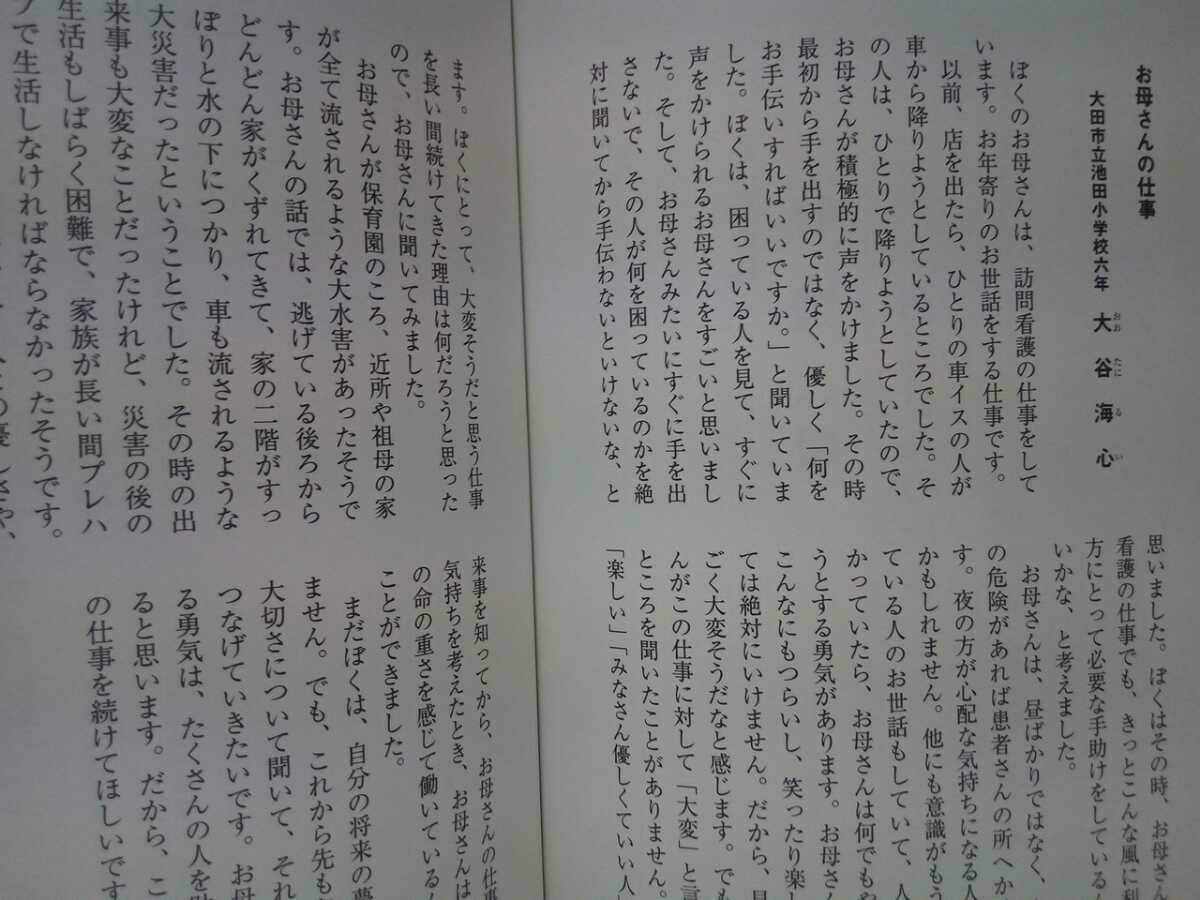 お母さんの仕事
大田市立池田小学校六年 大谷海心
おお たに る い
ぼくのお母さんは、訪問看護の仕事をして
います。お年寄りのお世話をする仕事です。
以前、店を出たら、ひとりの車イスの人が
車から降りようとしているところでした。そ
の人は、ひとりで降りようとしていたので、
お母さんが積極的に声をかけました。その時
最初から手を出すのではなく、優しく「何を
お手伝いすればいいですか。」と聞いていま
した。ぼくは、困っている人を見て、すぐに
声をかけられるお母さんをすごいと思いまし
た。そして、お母さんみたいにすぐに手を出
さないで、その人が何を困っているのかを絶
対に聞いてから手伝わないといけないな、と
思いました。ぼくはその時、お母さん
看護の仕事でも、きっとこんな風に利
方にとって必要な手助けをしている
いかな、と考えました。
お母さんは、昼ばかりではなく、
の危険があれば患者さんの所へか
す。夜の方が心配な気持ちになる人
かもしれません。他にも意識がもう
ている人のお世話もしていて、人
かっていたら、お母さんは何でもや
うとする勇気があります。お母さん
こんなにもつらいし、笑ったり楽し
ては絶対にいけません。だから、
ごく大変そうだなと感じます。でも
んがこの仕事に対して「大変」と言
ところを聞いたことがありません。
「楽しい」「みなさん優しくていい人
ます。ぼくにとって、大変そうだと思う仕事
を長い間続けてきた理由は何だろうと思った
ので、お母さんに聞いてみました。
お母さんが保育園のころ、近所や祖母の家
が全て流されるような大水害があったそうで
す。お母さんの話では、逃げている後ろから
どんどん家がくずれてきて、家の二階がすっ
ぽりと水の下につかり、車も流されるような
大災害だったということでした。その時の出
来事も大変なことだったけれど、災害の後の
生活もしばらく困難で、家族が長い間プレハ
ブで生活しなければならなかったそうです。
来事を知ってから、お母さんの仕事
気持ちを考えたとき、お母さんは
の命の重さを感じて働いている
ことができました。
まだぼくは、自分の将来の夢
ません。でも、これから先も
大切さについて聞いて、それ
つなげていきたいです。お母
る勇気は、たくさんの人を助
ると思います。だから、こ
の仕事を続けてほしいです